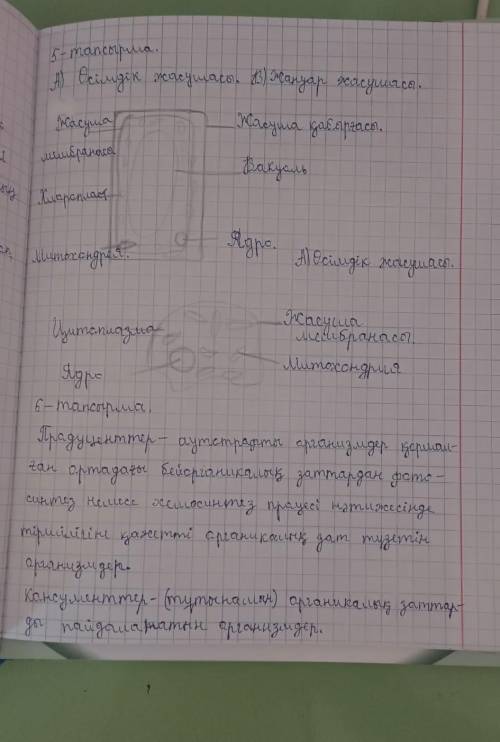 5-тапсырма.
А) Өсімдік жасушасы. В) Жануар жасушасы.
Жасуша
мембранасы
Жасуша қабырғасы.
Вакуоль
Хлоропласт
Митохондрия.
Ядро.
А) Өсімдік жасушасы.
Цитоплазма
Жасуша
мембранасы.
Ядро
Митохондрия
6-тапсырма.
Продуценттер - аутотрофты организмдер қоршал-
ған ортадағы бейорганикалық заттардан фото-
синтез немесе хемосинтез процесі нәтижесінде
тіршілігіне қажетті органикалық зат түзетін
организмдер.
Консументтер - (тутынамын) органикалық заттар-
ды пайдаланатын организмдер.